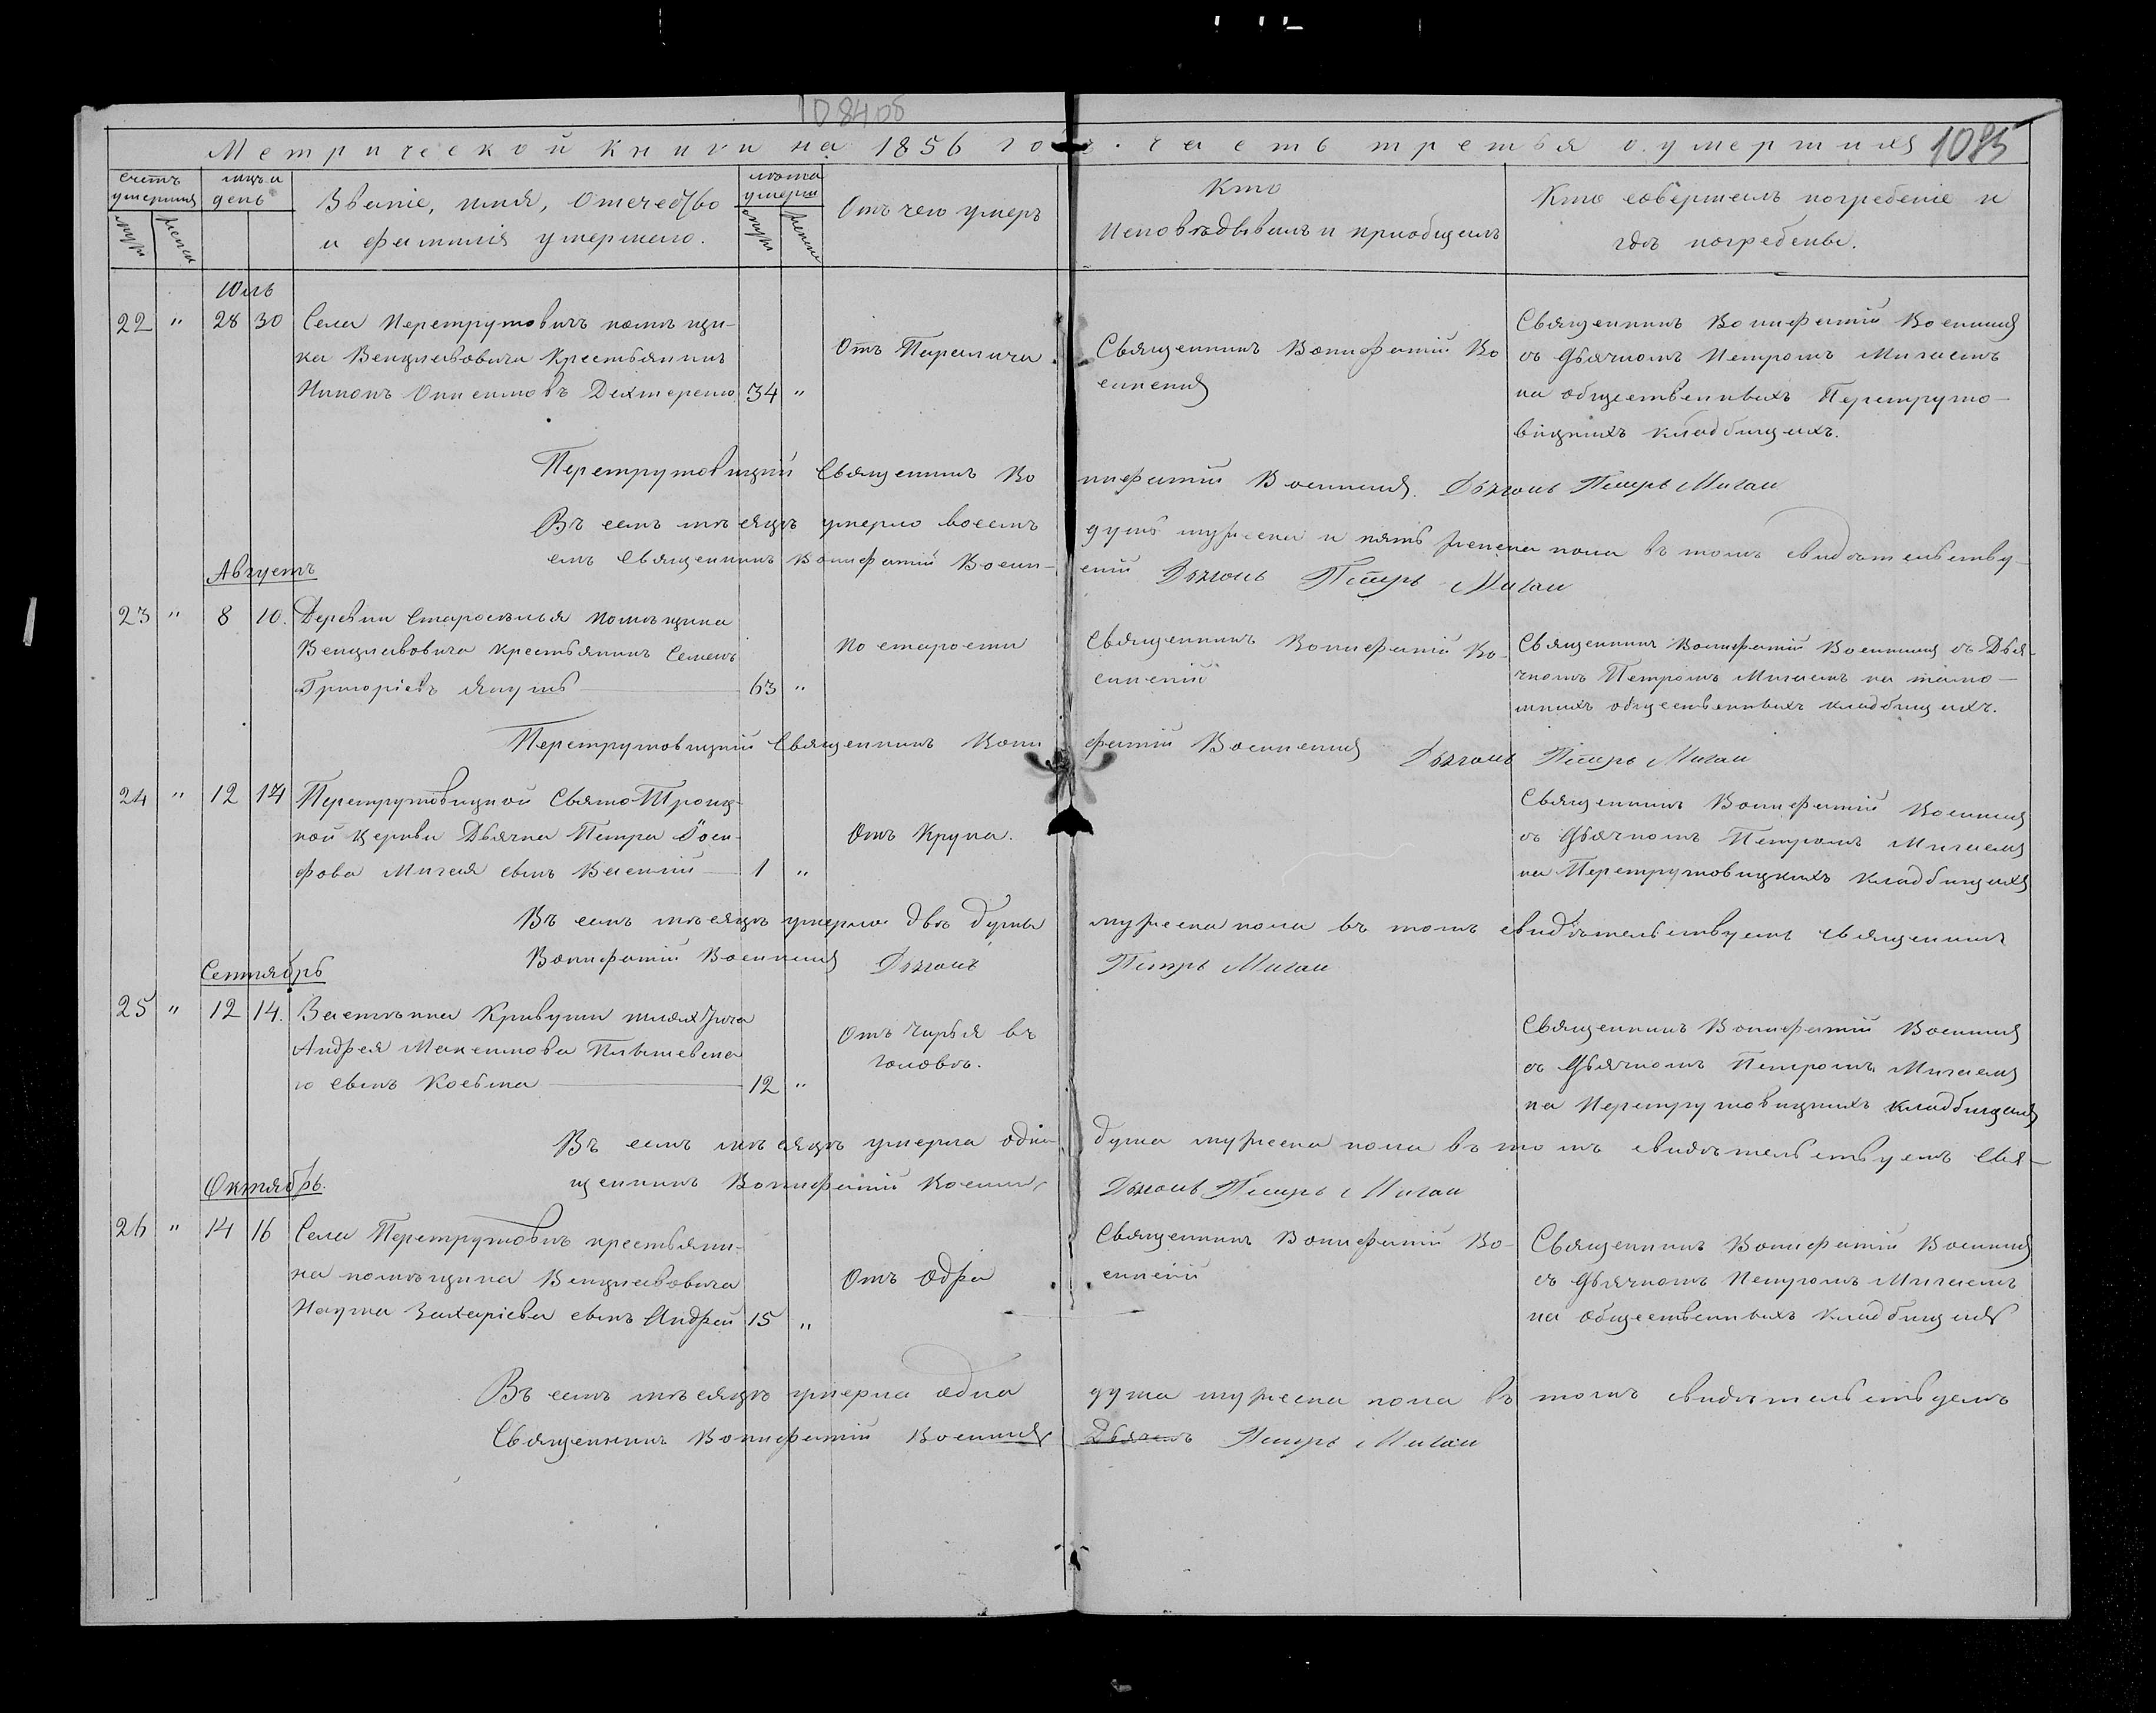 1084об
Метрической книги на 1856 годъ. часть третья о умершихъ 1085
счетъ умершихъ
мцъ и день
Званіе, имя, отечество
и фамилія умершаго.
лѣта умерш
Отъ чего умеръ
Кто
исповѣдывалъ и пріобщалъ
Кто совершалъ погребеніе и
гдѣ погребены.
муж женск
муж женск
Юль
22 " 28 30 Села Перетрутовичъ помѣщи-
ка Венцлавовича Крестьянинъ
Никонъ Онисимовъ Дехтеренко 34 "
Отъ Паралича.
Священникъ Вонифатій Во
Священникъ Вонифатій
съ Дьячкомъ Петромъ Мигаемъ
на общественныхъ Перетруто-
вицкихъ кладбищахъ.
Перетрутовицкій Священникъ Вонифатій Дьячокъ Петръ Мигай
Въ семъ мѣсяцѣ умерло восемъ душъ мужеска и пять женска пола въ томъ свидѣтельству-
емъ Священникъ Вонифатій Дьячокъ Петръ Мигай
Августъ
23 " 8 10. Деревни Старосѣлья помѣщика
Венцлавовича крестьянинъ Семенъ
Григоріевъ Якупъ 63 "
по старости
Священникъ Вонифатій Во-
Священникъ Вонифатій съ Дья-
чкомъ Петромъ Мигаемъ на тамо-
шнихъ общественныхъ кладбищахъ.
Перетрутовицкій Священникъ Вонифатій Дьячокъ Петръ Мигай
24 " 12 14 Перетрутовицкой Свято Троиц-
кой Церкви Дьячка Петра Іоси-
фова Мигая сынъ Василій 1 "
Отъ Крупа.
Священникъ Вонифатій
съ Дьячкомъ Петромъ Мигаемъ
на Перетрутовицкихъ кладбищахъ
Въ семъ мѣсяцѣ умерло двѣ души мужеска пола въ томъ свидѣтельствуемъ священникъ
Вонифатій Дьячокъ Петръ Мигай
Сентябрь
25 " 12 14. Застѣнка Кривуши
Андрея Максимова
го сынъ Косьма 12 "
Отъ чирья въ
головѣ.
Священникъ Вонифатій
съ Дьячкомъ Петромъ Мигаемъ
на Перетрутовицкихъ кладбищахъ
Въ семъ мѣсяцѣ умерла одна душа мужеска пола въ томъ свидѣтельствуемъ Свя-
щенникъ Вонифатій Дьячокъ Петръ Мигай
Октябрь.
26 " 14 16 Села Перетрутовичъ крестьяни-
на помѣщика Венцлавовича
Наума Захаріева сынъ Андрей 15 "
Отъ Одра
Священникъ Вонифатій Во-
Священникъ Вонифатій
съ Дьячкомъ Петромъ Мигаемъ
на общественныхъ кладбищахъ
Въ семъ мѣсяцѣ умерла одна душа мужеска пола въ томъ свидѣтельствуемъ
Священникъ Вонифатій Дьячекъ Петръ Мигай